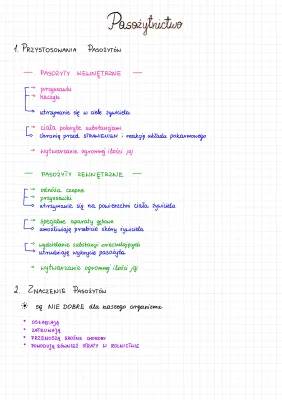 Pasożytnictwo
1. PRZYSTOSOWANIA PASOŻYTÓW
— PASOŻYTY WEWNĘTRZNE —
→ przyssawki
→ haczyki
→ utrzymanie się w ciele żywiciela
→ ciała pokryte substancjami
→ chronią przed STRAWIENIEM i reakcją układu pokarmowego
→ wytwarzanie ogromnej ilości jaj
— PASOŻYTY ZEWNĘTRZNE —
→ odnóża czepne
→ przyssawki
→ utrzymanie się na powierzchni ciała żywiciela
→ specjalne aparaty gębowe
→ umożliwiają przebicie skóry żywiciela
→ wydzielanie substancji znieczulających
→ utrudniają wykrycie pasożyta
→ wytwarzanie ogromnej ilości jaj
2. ZNACZENIE PASOŻYTÓW
są NIE DOBRE dla naszego organizmu
* OSŁABIAJĄ
* ZATRUWAJĄ
* PRZENOSZĄ GROŹNE CHOROBY
* POWODUJĄ RÓWNIEŻ STRATY W ROLNICTWIE